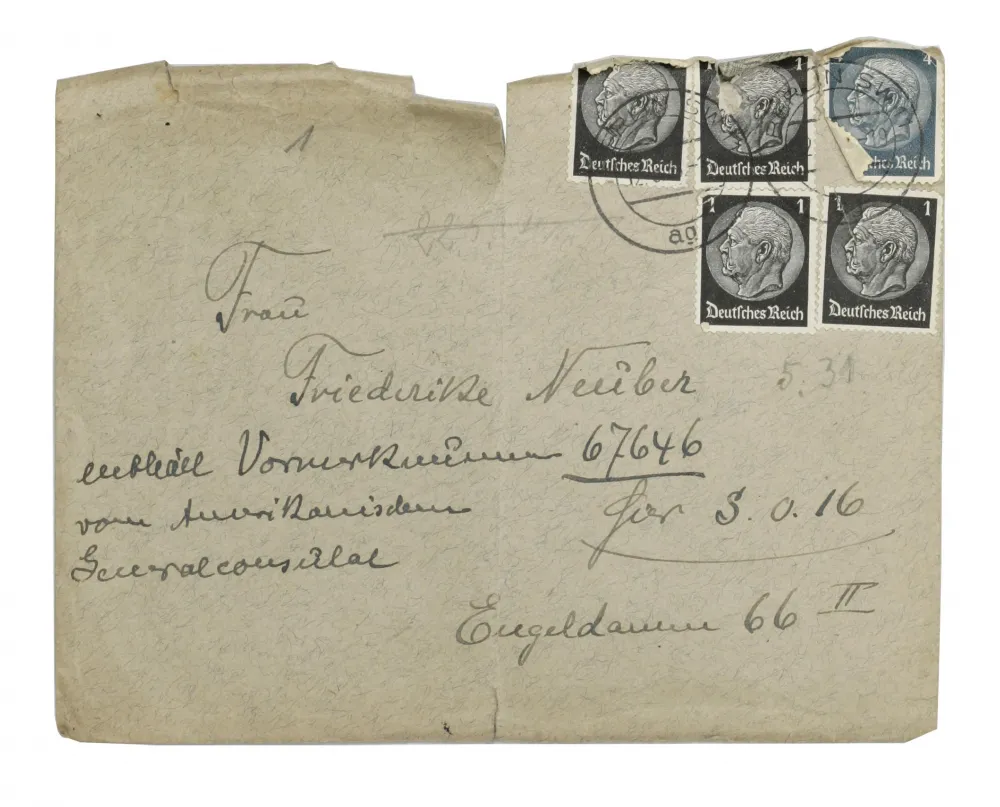 1
1
1
4
Deutsches Reich
Deutsches Reich
ches Reich
1 1
1 1
Deutsches Reich
Deutsches Reich
ag
Frau
Friederike Neuber
5.31
enthält Vormerknummer 67646
vom Amerikanischen
Generalconsulat
hier S.O.16
Engeldamm 66 II